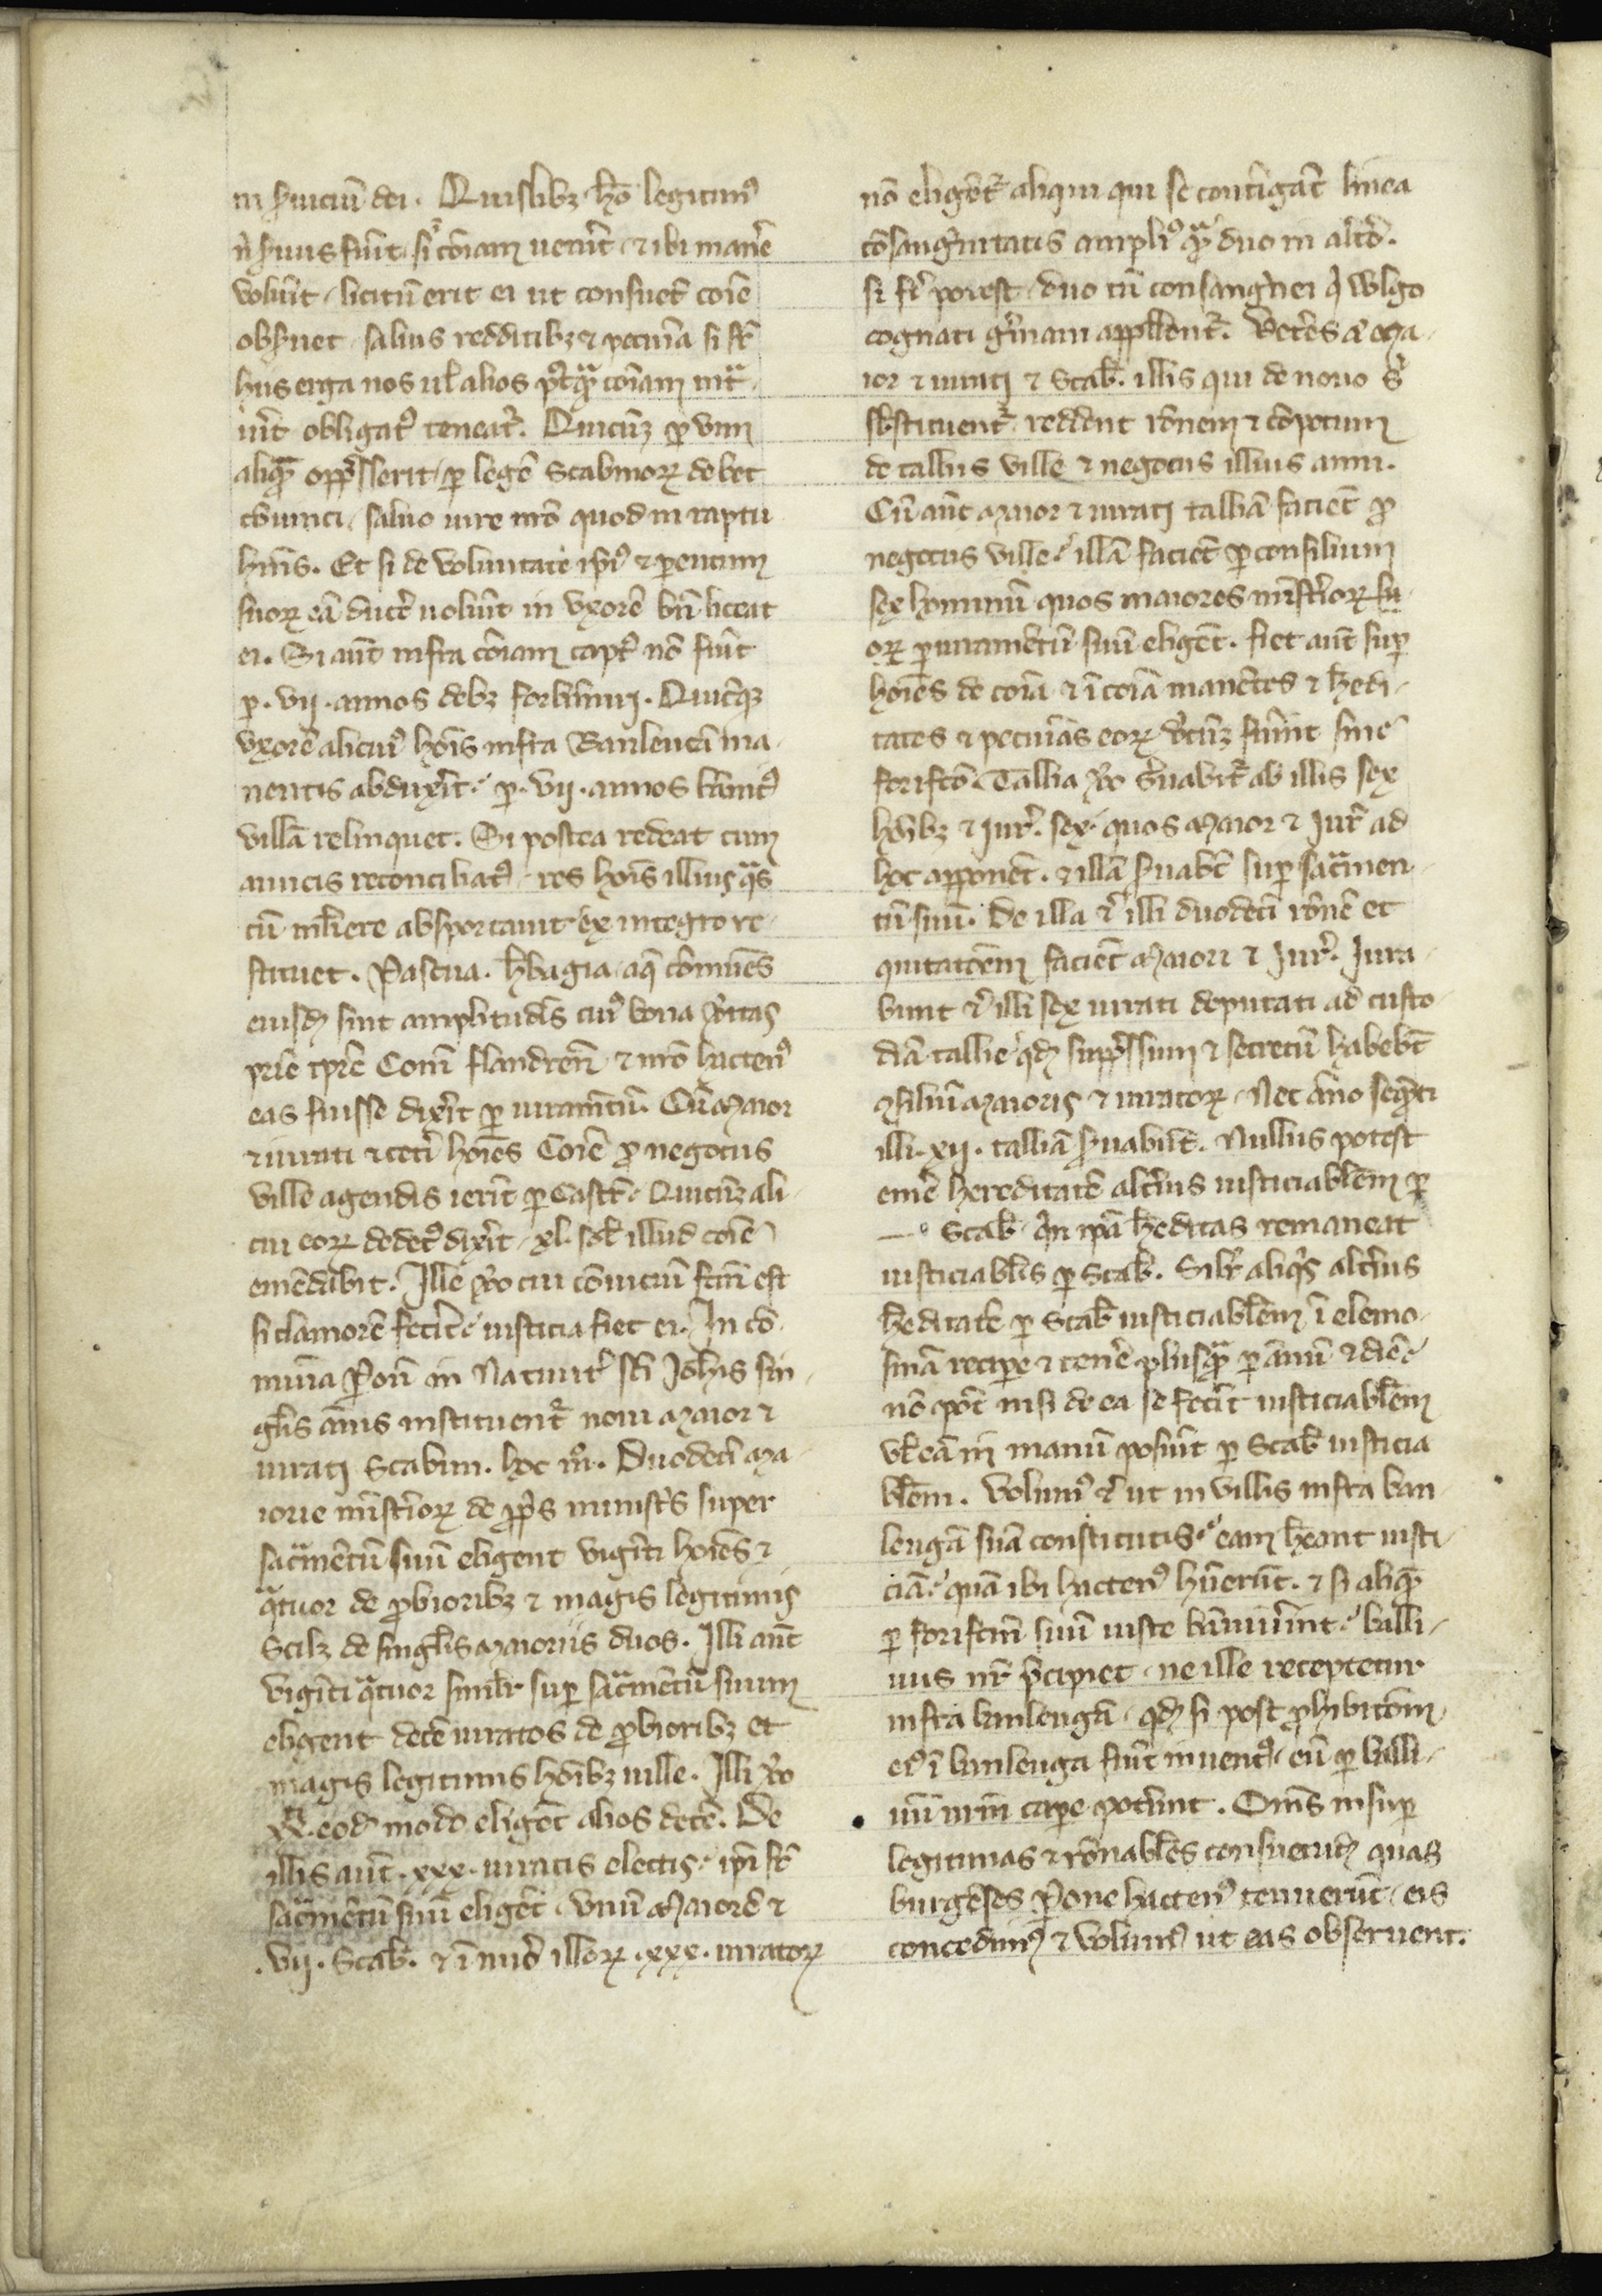 in ẜuiciũ dei. Quislibꝫ hõ legitimꝰ
ñ ẜuus fũit si ĩ cõiam uenit ⁊ ibi mañe
voluit licitũ erit ei ut consuet̃ cõie
obẜuet saluis redditibꝫ ⁊ pecuĩa si fẽ
huis erga nos ul̃ alios pꝰtq̃ cõiam int̃
iũit obligatꝰ teneat᷑. Quicũqꝫ ꝑ vim
aliq̃ opp̃sserit ꝑ legẽ Scabinoꝝ debet
cõuinci saluo iure nrõ quod in raptu
hẽmꝰ. Et si de voluntate ipĩꝰ ⁊ ꝑentum
suoꝝ eã duce᷑ uoluit in vxorẽ bñ liceat
ei. Si aũt infra cõiam captꝰ nõ fuit
ꝑ .vij. annos debꝫ forbãniri. Quicũqꝫ
vxorẽ alicuiꝰ hoĩs infra Banleucã ma
nentis abduxit ꝑ .vij. annos bãnitꝰ
villã relinquet. Si postea redeat cum
amicis reconciliatꝰ res hoĩs illius q̃s
cũ mliere absportauit ex integro re
stituet. Pascua. h̃bagia aq̃ cõmunes
eiusdẽ sint amplitudĩs cuiꝰ bona v̾itas
ꝑrie tp̃re Com̃ flandren̾ ⁊ nrõ hactenꝰ
eas fuisse dixit ꝑ iuramtũ. Cũ Maior
⁊ iurati ⁊ ceti hoĩes Cõie ꝓ negociis
ville agendis ierit ꝑ Castr̃. Quicũqꝫ ali
cui eoꝝ dedecꝰ dixit .xl. sol̃ illud cõie
emẽdabit. Ille v̾o cui cõuiciũ fcm̃ est
si clamorẽ fecit iusticia fiet ei. In cõ
munia ꝑoñ in Natiuit᷑ sc̃i Joh̃is sin
gl̃is ãnis instituent᷑ noui Maior ⁊
iurati Scabini. hoc m̊. Duodeci Ma
iorie mĩstioꝝ de pp̃s ministis super
sacrmẽtũ suũ eligent viginti hoĩes ⁊
q̃tuor de ꝓbioribꝫ ⁊ magis legitimis
Scilꝫ de singl̃is Maioriis duos. Illi aũt
viginti q̃tuor simil̃r suꝑ sacrmẽtũ suum
eligent decẽ iuratos de ꝓbioribꝫ et
magis legitimis hoĩbꝫ uille. Illi v̾o
eod̃ modo eligẽt alios decẽ. De
illis aũt .xxx. iuratis electis ipĩ fẽ
sacrmẽtũ suũ eligẽt vnũ Maiorẽ ⁊
.vij. Scab̃. ⁊ ĩ nũo illoꝝ .xxx. iuratoꝝ
nõ eligẽt᷑ aliqui qui se contigãt linea
cõsang̃nitatis ampliꝰ q̃ duo in alto.
si fi᷑ potest duo tñ consang̃nei q̃ wlgo
cognati g̃mani appellent᷑. Vetes a̾ Ma
ior ⁊ iurati ⁊ Scab̃. illis qui de nouo s᷑
s̃bstituent᷑ reddent rõnem ⁊ cõpotum
de talliis ville ⁊ negociis illius anni.
Cũ aũt Maior ⁊ iurati talliã faciẽt ꝓ
negociis ville illã faciẽt ꝑ consilium
sex hominũ quos maiores mĩstioꝝ su
oꝝ ꝑ iuramẽtũ suũ eligẽt. fiet aũt suꝑ
hoĩes de cõia ⁊ ĩ cõia manẽtes ⁊ h̃edi
tates ⁊ pecuĩas eoꝝ vbicũqꝫ fuĩnt sine
forifcõ. Tallia v̾o ẜuabit᷑ ab illis sex
hoĩbꝫ ⁊ Jur᷑. sex quos Maior ⁊ Jur᷑ ad
hoc apponẽt. ⁊ illã ẜuabt̃ suꝑ sacrmen
tũ suũ. De illa e̾ illi duodeci rõnẽ et
quitatõem faciẽt Maiori ⁊ Jur᷑. Jura
bunt e̾ illi sex iurati deputati ad custo
diã tallie qd̾ supp̃ssum ⁊ secretũ habebt̃
ꝯsiliũ Maioris ⁊ iuratoꝝ. Nec ãno seq̃nti
illi .xij. talliã ẜuabũt. Nullus potest
eme᷑ hereditatẽ altius iusticiablem ꝑ
Scab̃ q̃n ip̃a h̃editas remaneat
iusticiabl̃is ꝑ Scab̃. Silr᷑ aliq̃s altius
h̃editatẽ ꝑ Scab̃ iusticiabl̃em ĩ elemo
sinã recipe᷑ ⁊ tene᷑ plusq̃ ꝑ ãnũ ⁊ diẽ
nõ põt nisi de ea se fecit iusticiabl̃em
vl̃ eã in manũ posuit ꝑ Scab̃ iusticia
bl̃em. Volumꝰ e̾ ut in villis infra ban
leugã suã constitutis eam h̃eant iusti
ciã quã ibi hactenꝰ h̃uerũt. ⁊ si aliq̃
ꝑ forifcm̃ suũ iuste bãniuĩnt balli
uus nr̃ p̃cipiet ne ille receptetur
infra banleugã qd̾ si post ꝓhibitõem
eiꝰ ĩ banleuga fuit inuentꝰ eũ ꝑ balli
uũ nrm̃ cape᷑ poterint. Om̃s insuꝑ
legitimas ⁊ rõnabl̃es consuetud̾ quas
burgẽses ꝑone hactenꝰ tenuerũt eis
concedimꝰ ⁊ volumꝰ ut eas obseruent.